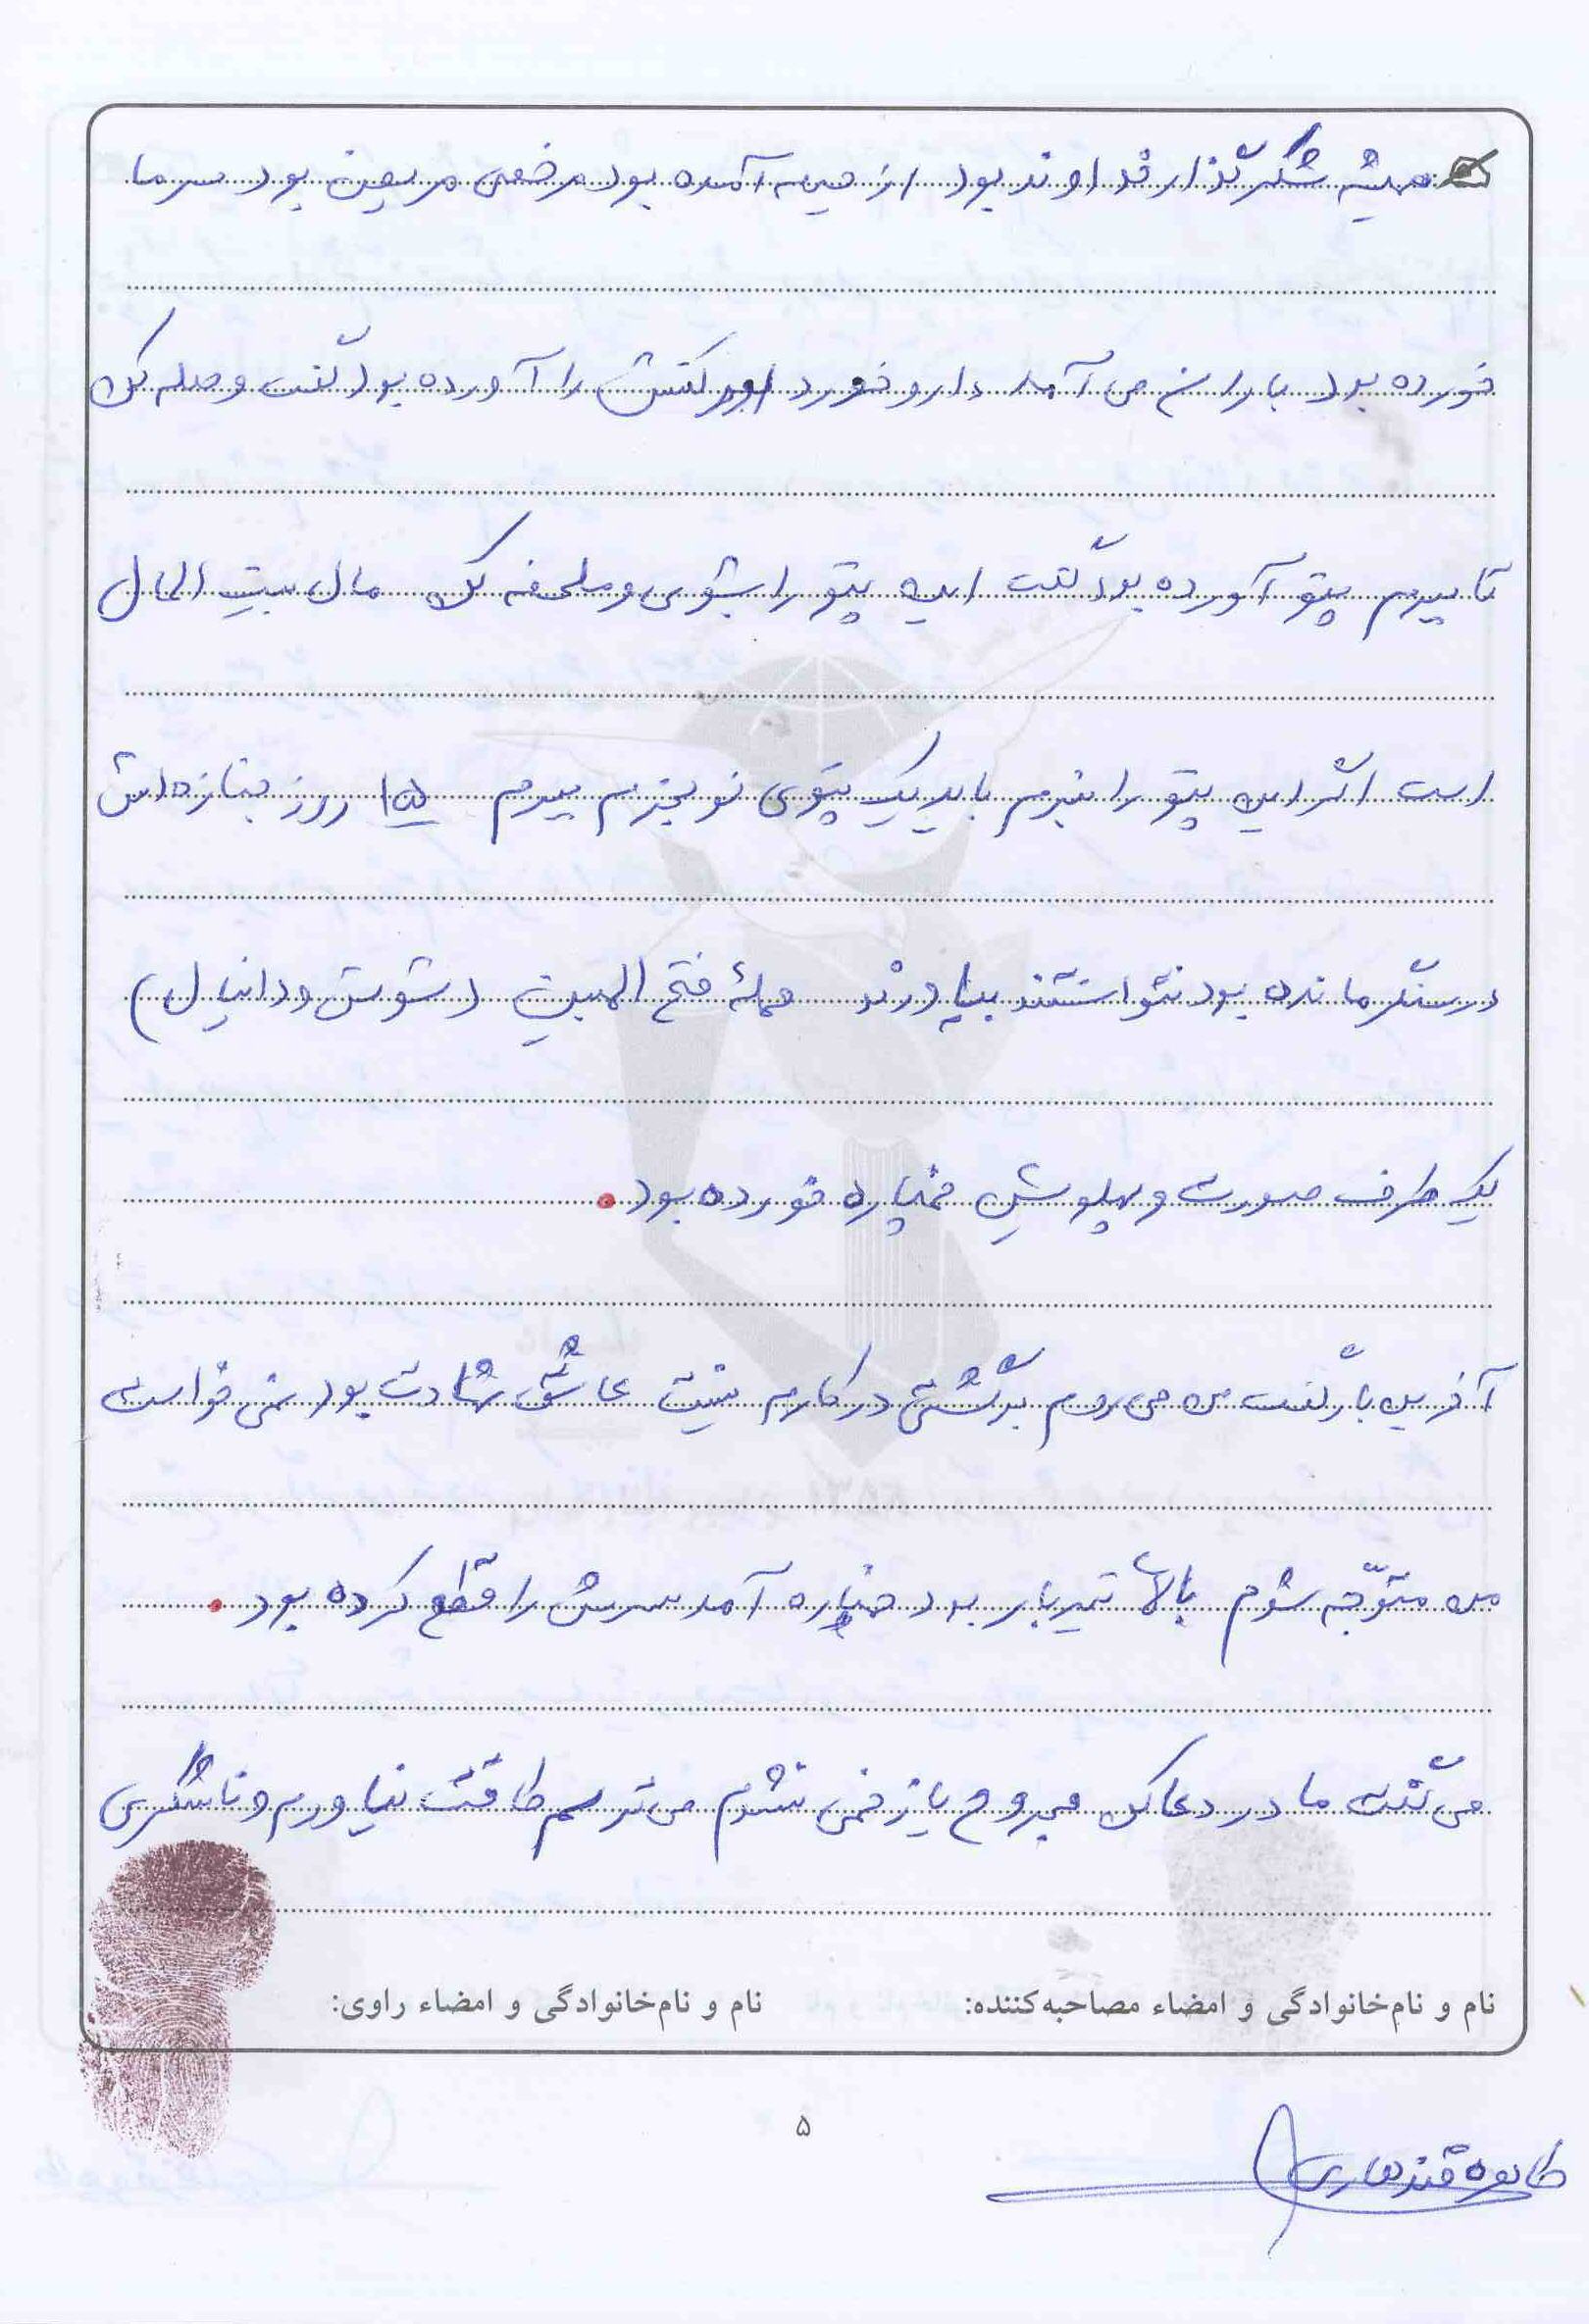 همیشه شکرگذار خداوند بود از جبهه آمده بود مرخصی مریض بود سرما
خورده بود باران می آمد دارو خورد اورکتش را آورده بود گفت وصله کن
تا ببرم پتو آورده بود گفت این پتو را بشوی و ملحفه کن مال بیت المال
است اگر این پتو را نبرم باید یک پتوی نو بخرم ببرم ۱۵ روز جنازه اش
در سنگر مانده بود نتوانستند بیاورند حملهٔ فتح المبین (شوش و دانیال)
یک طرف صورت و پهلویش خمپاره خورده بود.
آخرین بار گفت من می روم برگشتی در کارم نیست عاشق شهادت بود نمی خواست
من متوجّه شوم بالای تیربار بود خمپاره آمد سرش را قطع کرده بود.
می گفت مادر دعا کن مجروح یا زخمی نشوم می ترسم طاقت نیاورم و ناشکری
نام و نام‌خانوادگی و امضاء مصاحبه‌کننده: نام و نام‌خانوادگی و امضاء راوی:
۵
طاهره قندهاری